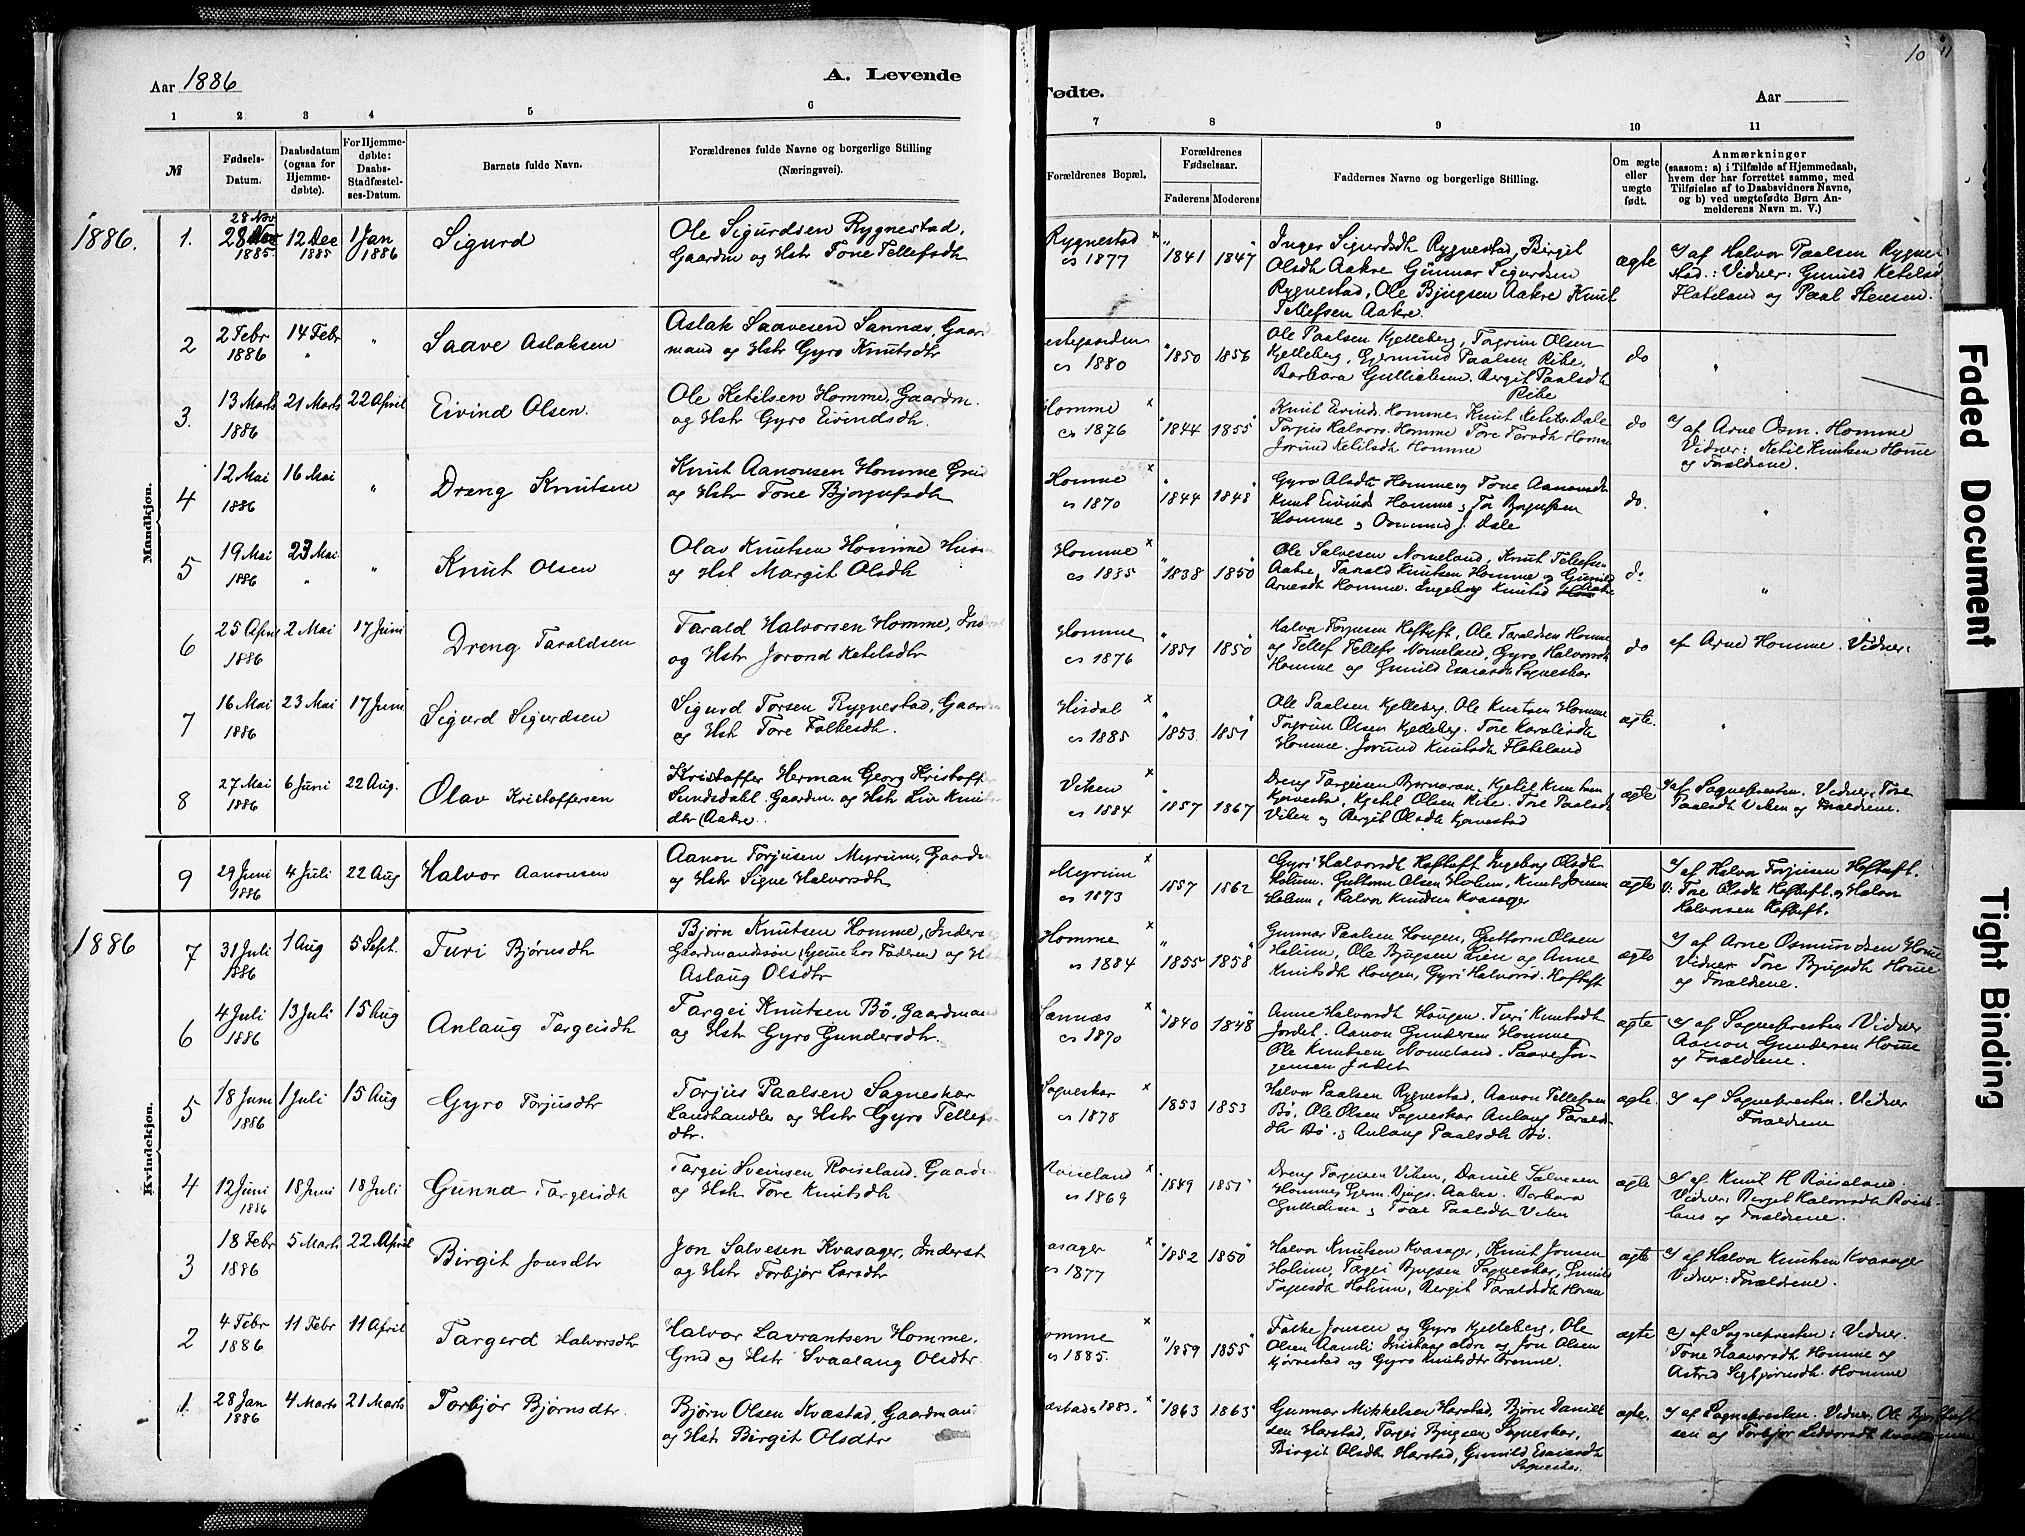 Aar 1886
A. Levende
Fødte.
Aar
10
1
2
3
4
5
6
7
8
9
10
11
№
Fødsels-
Datum.
Daabsdatum
(ogsaa for
Hjemme-
døbte).
For Hjemme-
døbte:
Daabs-
Stadfæstel-
ses-Datum.
Barnets fulde Navn.
Forældrenes fulde Navne og borgerlige Stilling
(Næringsvei).
Forældrenes Bopæl.
Forældrenes
Fødselsaar.
Faderens
Moderens
Faddernes Navne og borgerlige Stilling.
Om ægte
eller
uægte
født.
Anmærkninger
(saasom: a) i Tilfælde af Hjemmedaab,
hvem der har forrettet samme, med
Tilføielse af to Daabsvidners Navne,
og b) ved uægtefødte Børn An-
melderens Navn m. V.)
Mandkjøn.
1886.
1.
28 Nov
28
1885.
12 Dec
1885
1 Jan
1886
Sigurd
Ole Sigurdsen Rygnestad,
Gaardm og Hstr Tone Tellefsdh
Rygnestad
cs 1877
1841
1847
Inger Sigurdsdh Rygnestad, Birgit
Olsdh Aakre Gunnar Sigurdsen
Rygnestad, Ole Bjugsen Aakre Knut
Tellefsen Aakre.
ægte
af Halvor Paalsen Rygne-
stad: Vidner: Gunild Ketilsd
Flateland og Paal Stensen.
2
2 Febr
1886
14 Febr
"
"
Saave Aslaksen
Aslak Saavesen Sannæs, Gaar
mand og Hstr Gyro Knutsdtr
estegaarden
cs 1880
1850
1856
Ole Paalsen Kjelleberg, Torgrim Olsen
Kjelleberg, Gjermund Paalsen Ribe,
Barbara Gulliksen. Bergit Paalsdh
Ribe
do
"
3.
13 Marts
1886
21 Marts
22 April
Eivind Olsen.
Ole Ketilsen Homme, Gaardm.
og Hstr Gyro Eivindsdh.
Homme
cs 1876
1844
1855
Knut Eivinds. Homme, Knut Ketils. Dale
Torjus Halvors. Homme Tore Torsdh Homme
Jorund Ketilsdh Homme
do
af Arne Osm. Homme
Vidner: Ketil Knutsen Home
og Forældrene.
4
12 Mai
1886
16 Mai
"
Dreng Knutsen
Knut Aanonsen Homme Grd
og Hstr Tone Bjorgufsdh
Homme
cs 1870
1844
1848
Gyro Olsdh Homme og Tone Aanonsdh
Knut Eivinds Homme, Tor Borgufsen
Homme, Osmund J. Dale
do.
"
5
19 Mai
1886
23 Mai
"
"
Knut Olsen
Olav Knutsen Homme Hus
og Hst Margit Olsdh
Homme
cs 1885
1838
1850
Ole Salvesen Nomeland, Knut Tellefsen
Aakre, Tarald Knutsen Homme og Gunild
Arnesdh Homme. Ingeborg Knutsd Aakre
do
"
6
25 April
1886
2 Mai
17 Juni
Dreng Taraldsen
Tarald Halvorsen Homme, Inderst
og Hstr Jorond Ketilsdtr
Homme
cs 1876
1851
1850
Halvor Torjusen Hoftuft, Ole Taraldsen Homme
og Tellef Tellefs Nomeland, Gyro Halvorsdh
Homme og Gunild Esaiasdh Sagneskar
do
af Arne Homme. Vidner:
7
16 Mai
1886
23 Mai
17 Juni
Sigurd Sigurdsen
Sigurd Torsen Rygnestad, Gaardm
og Hstr Tore Folkesdh.
Hisdal
cs 1885
1853
1851
Ole Paalsen Kjelleberg. Ole Knutsen Homme
Torgrim Olsen Kjelleberg. Tore
Homme. Jorund Knutsdh Flateland
ægte.
"
8
27 Mai
1886
6 Juni
22 Aug.
Olav Kristoffersen
Kristoffer Herman Georg Kristoffer
Sundsdahl. Gaardm. og Hstr Liv Knuts
dtr (Aakre.
Viken
cs 1884
1857
1867
Dreng Targeisen Bjørnaraa. Kjetil Knutsen
Kjørvestad, Kjetil Olsen Ribe. Tore Paalsdh
Viken og Bergit Olsdh Kjørvestad
ægte
af Sognepresten. Vidner: Tore
Paalsdh Viken og Forældrene.
9
29 Juni
1886
4 Juli
22 Aug
Halvor Aanonsen
Aanon Torjusen Myrum, Gaardm
og Hstr Signe Halvorsdh
Myrum
cs 1873
1857
1862
Gyri Halvorsdh Hoftuft Ingeborg Olsdh
Holum. Guttorm Olsen Holum, Knut Jonsen
Holum, Halvor Knudsen Kvasager
ægte
af Halvor Torjusen Hoftuft.
V: Tore Olsdh Hoftuft og Halvor
Halvorsen Hoftuft.
Kvindekjøn.
1886
7
31 Juli
1886
1 Aug
5 Sept.
Turi Bjørnsdh
Bjørn Knutsen Homme, Inders
Gaardmandssøn (hjemme hos Faderen) og Hst
Aslaug Olsdtr
Homme
cs 1884
1855
1858
Gunnar Paalsen Hougen, Guttorm Olsen
Holum, Ole Bjugsen Lien og Anne
Knutsdh Hougen, Gyri Halvorsd. Hoftuft
ægte
af Arne Osmundsen Home
Vidner Tore Bjugsdh Home
og Forældrene.
6
4 Juli
1886
13 Juli
15 Aug
Anlaug Targeisdh
Targei Knutsen Bø, Gaardmand
og Hstr Gyro Gundersdtr.
Sannæs
cs 1870
1840
1848
Anne Halvorsdh Hougen. Turi Knutsdh
Jordet. Aanon Gundersen Homme
Ole Knutsen Nomeland. Saave Jor-
gensen Jordet
ægte
af Sognepresten Vidner
Aanon Gundersen Home
og Forældrene.
5
18 Juni
1886
1 Juli
15 Aug
Gyro Torjusdtr
Torjus Paalsen Sagneskar
Landhandler og Hstr Gyro Tellefs-
dtr.
Sagneskar
cs 1878
1853
1853
Halvor Paalsen Rygnestad, Aanon Tellefsen
Bø, Ole Olsen Sagneskar Anlaug Tarald-
dtr Bø. og Anlaug Paalsdh Bø.
ægte.
af Sognepresten. Vidner
Forældrene
4
12 Juni
1886
18 Juni
18 Juli
Gunna Targeisdh
Targei Sveinsen Roiseland. Gaardm
og Hstr Tore Knutsdh
Roiseland
cs 1869
1849
1851
Dreng Torjusen Viken, Daniel Salvesen
Homme, Gjerm. Bjugs. Aakre. Barbara
Gulliksen og Tone Paalsdh Viken
ægte
af Knut H Roiseland
Vidner: Birgit Halvorsdh Rois-
land og Forældrene.
3
18 Febr
1886
5 Marts
22 April
Birgit Jonsdtr
Jon Salvesen Kvasager, Inderst
og Hstr Torbjør Larsdtr
asager
cs 1877
1852
1850
Halvor Knutsen Kvasager, Knut Jonsen
Holum, Targei Bjugsen Sagneskar, Gunild
Torjusdh Holum, Bergit Taraldsdh Home
ægte
af Halvor Knutsen Kvasager
Vidner: Forældrene.
2
4 Febr
1886
11 Febr
11 April
Targerd Halvorsdtr
Halvor Lavrantsen Homme.
Grd og Hstr Svaalaug Olsdtr
omme
cs 1885.
1859
1855
Folke Jonsen og Gyro Kjelleberg, Ole
Olsen Aamli Trustang aldre og Jon Olsen
Kjørvestad og Gyro Knutsdtr Brenne.
ægte
af Sognepresten: Vidner.
Tone Haavorsdh Homme og
Astrid Sigbjørnsdh. Homme
1.
28 Jan
1886
4 Marts
21 Marts
Torbjør Bjørnsdtr.
Bjørn Olsen Kvæstad, Gaardmand
og Hstr Birgit Olsdtr
æstad cs 1883.
1863
1865
Gunnar Mikkelsen Harstad, Bjørn Daniel-
sen Harstad, Targei Bjugsen Sagneskar,
Birgit Olsdh Harstad, Gunild Esaiasdh
Sagneskar.
ægte.
af Sognepresten. Vidner. Ole
sen og Torbjør
Faded Document
Tight Binding